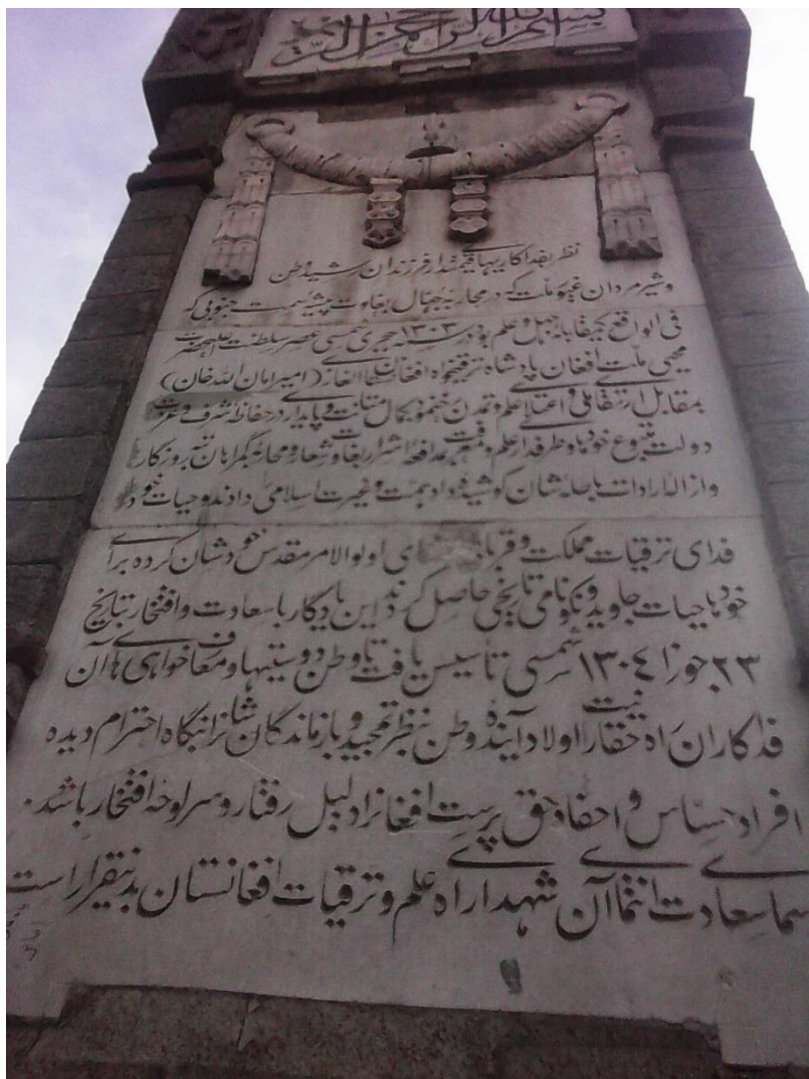 بسم الله الرحمن الر
نظر بفداکاریهای قیمتدار فرزندان رشید وطن
و شیر مردان غیور ملت که در محاربه جهال بغاوت پیشه سمت جنوبی که
فی الواقع کیفا به جهل و علم بود در سنه ۱۳۰۳ هجری شمسی عصر سلطنت اعلیحضرت
محیی ملت افغان پادشاه ترقیخواه افغانستان الغازی (امیر امان الله خان)
بمقابل ارتقای ملی و اعتلای علم و تمدن بکمال متانت و پایداری در حفاظه شرف و عزت
دولت متبوع خودها و طرفداری علم و معرفت بمدافعه اشرار بغاوت شعار و محاربه گمراهان تیره روزگار
و از الارادات باطله شان کوشیده داد همت و غیرت اسلامی دادند و حیات خود
فدای ترقیات مملکت و اولوالامر مقدس خود شان کرده برای
خودها حیات جاوید و نکونامی تاریخی حاصل کردند این یادگار با سعادت و افتخار بتاریخ
۲۳ جوزا ۱۳۰٤ شمسی تاسیس یافت تا وطن دوستیها و معارف خواهی های آن
فداکاران راه حقانیت را اولاد آینده وطن بنظر تمجید و بازماندگان شانرا بنگاه احترام دیده
افراد حساس و احفاد حق پرست افغانرا دلیل رفتار و سرلوحه افتخار باشد.
سعادت انتمای آن شهدای راه علم و ترقیات افغانستان بدینقرار است